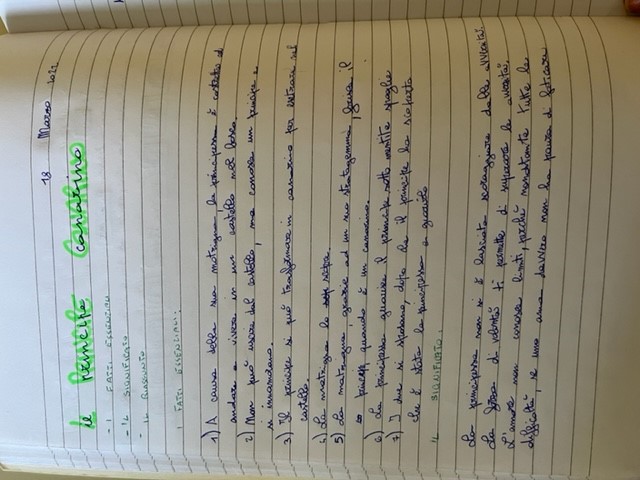 18 Marzo 2022
Il PRINCIPE CANARINO
- I FATTI ESSENZIALI
- IL SIGNIFICATO
- IL RIASSUNTO
I FATTI ESSENZIALI:
1) A causa della sua matrigna la principessa è costretta ad
andare a vivere in un castello nel bosco.
2) Non può uscire dal castello, ma conosce un principe e
si innamorano.
3) Il principe si può trasformare in canarino per entrare nel
castello.
4) La matrigna lo
5) La matrigna, grazie ad un suo stratagemma, il
quando è un canarino.
6) La principessa guarisce il principe sotto mentite spoglie
7) I due si sposano, dopo che il principe ha scoperto
che è stata la principessa a guarirlo
IL SIGNIFICATO:
La principessa non si è lasciata scoraggiare dalle avversità.
La forza di volontà ti permette di superare le avversità.
L'amore non conosce limiti, perché nonostante tutte le
difficoltà, se uno ama davvero non ha paura di faticare